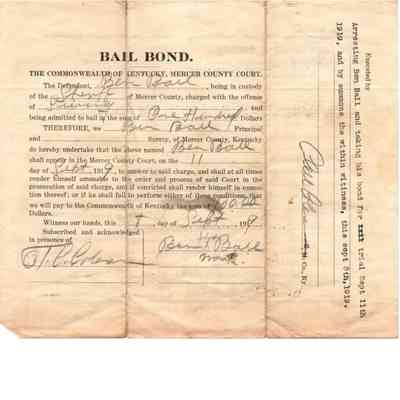 BAIL BOND.
THE COMMONWEALTH OF KENTUCKY, MERCER COUNTY COURT.
The Defendant, Ben Ball, being in custody
of the Sheriff of Mercer County, charged with the offense
of
being admitted to bail in the sum of One Hundred Dollars
THEREFORE, we Ben Ball Principal
and Surety, of Mercer County, Kentucky
do hereby undertake that the above named Ben Ball
shall appear in the Mercer County Court, on the 11
day of Sept 1919, to answer to said charge, and shall at all times
render himself amenable to the order and process of said Court in the
prosecution of said charge, and if convicted shall render himself in execu-
tion thereof; or if he shall fail to perform either of these conditions, that
we will pay to the Commonwealth of Kentucky the sum of $100.00
Dollars.
Witness our hands, this day of Sept 1919
Subscribed and acknowledged
in presence of
Ben Ball
mark
Executed by
Arresting Ben Ball and taking his bond for trial Sept 11th
1919, and by summons the within witnesses, this sept 8th, 1919.
M. Co. Ky.